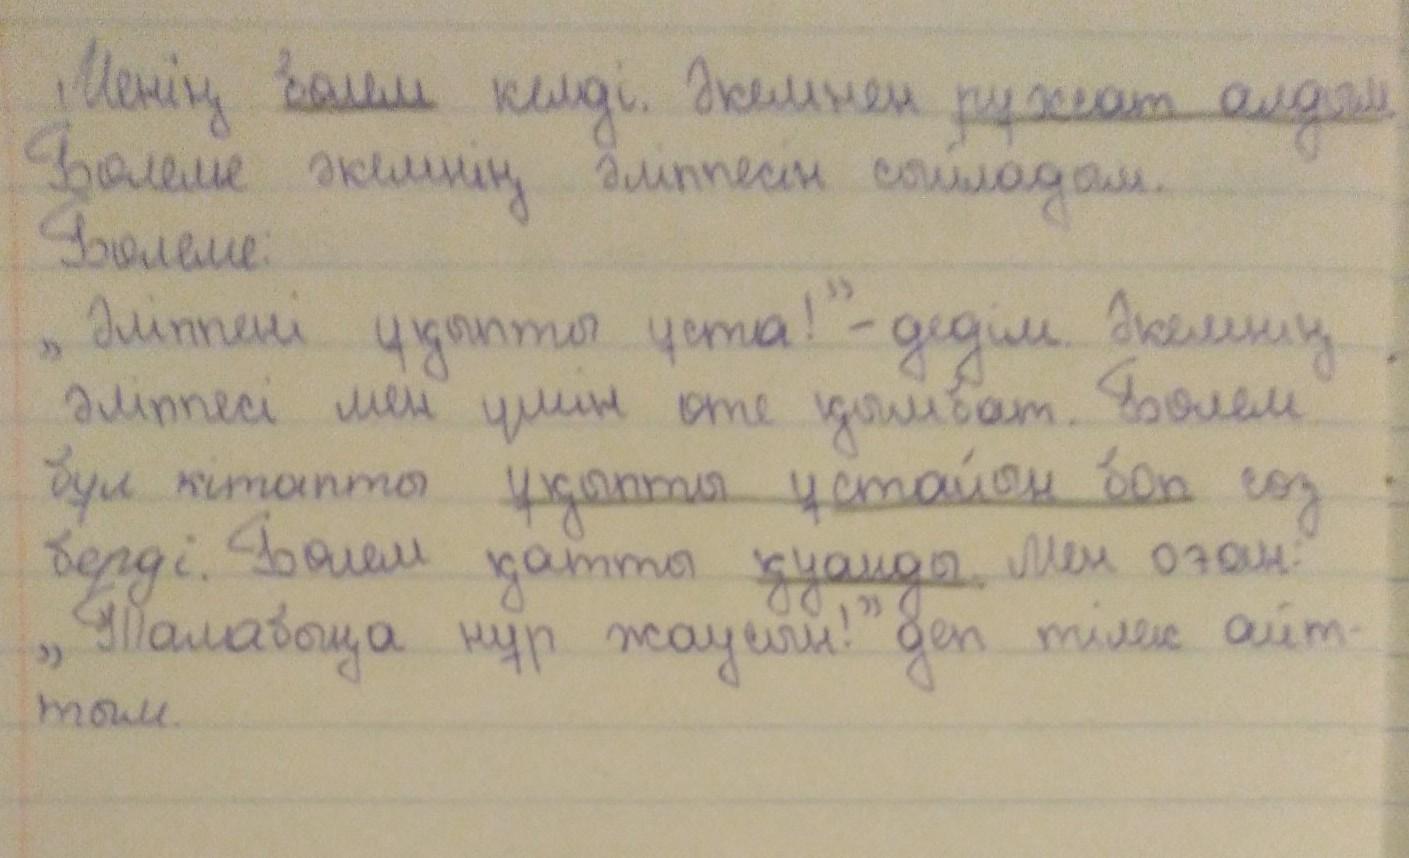 Менің бөлем келді. Әкемнен рұқсат алдым.
Бөлеме әкемнің әліппесін сыйладым.
Бөлеме:
„Әліппені ұқыпты ұста!” – дедім. Әкемнің
әліппесі мен үшін өте қымбат. Бөлем
бұл кітапты ұқыпты ұстайын боп сөз
берді. Бөлем қатты қуанды. Мен оған:
„Талабыңа нұр жаусын!” деп тілек айт-
тым.